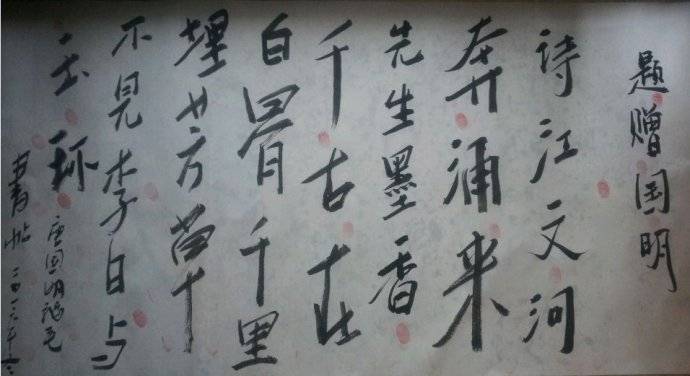 题赠国明
诗江文河
奔涌来
先生墨香
千古在
白骨千里
埋芳草
不见李白与
玉环
唐国明鸿毛
書帖